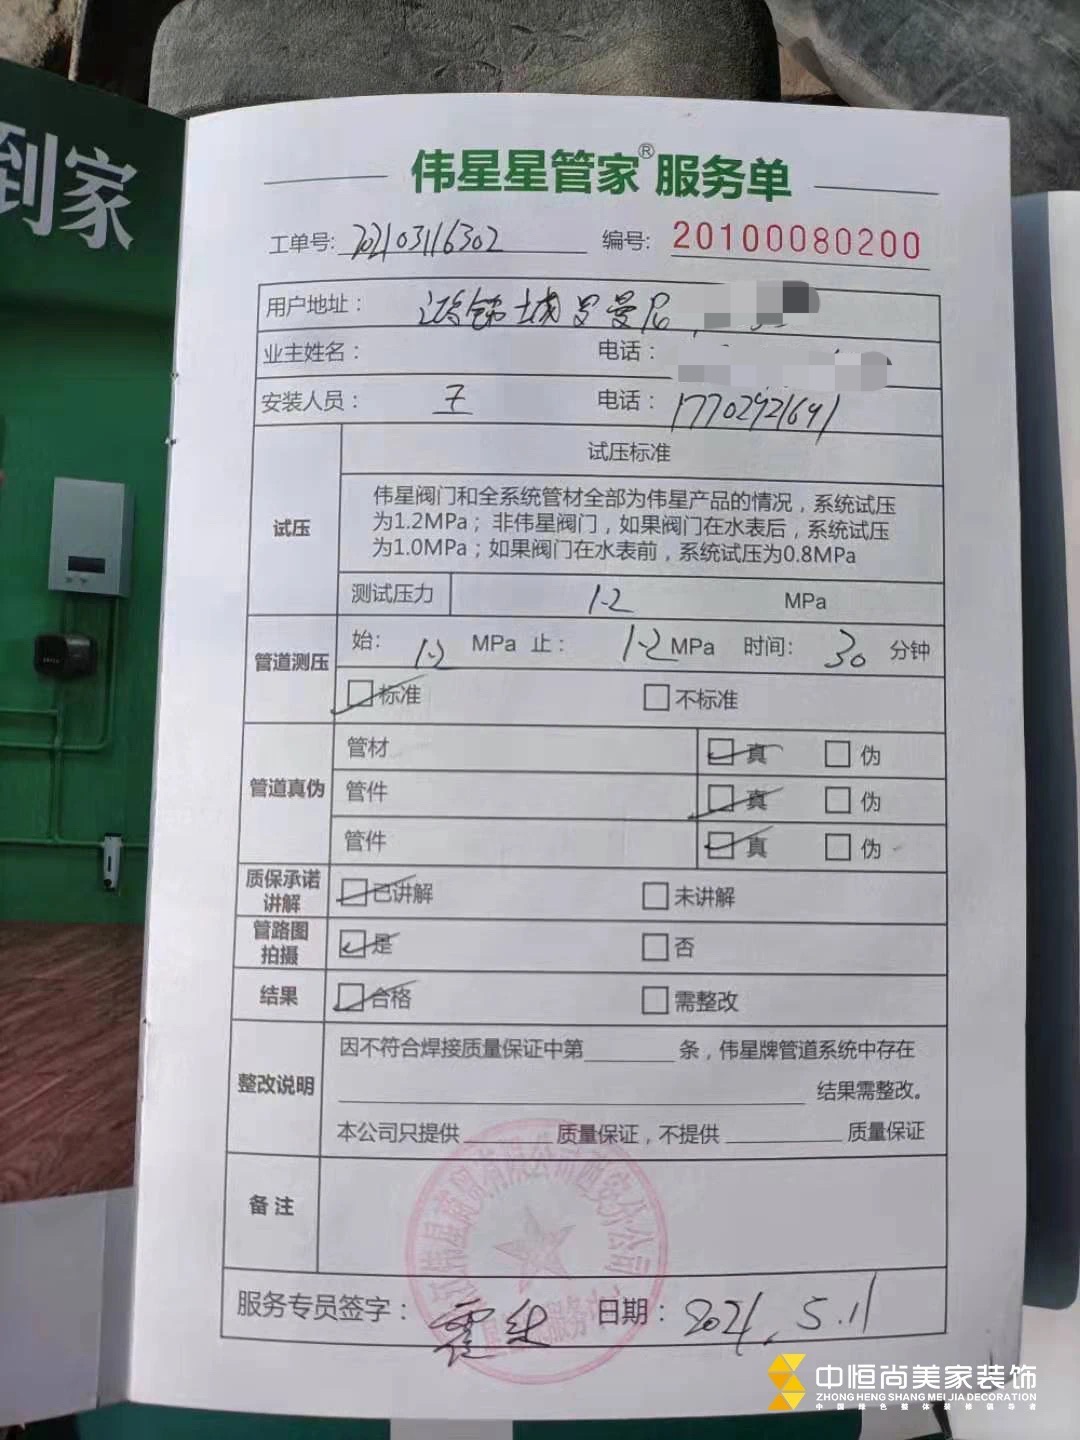 到家
伟星星管家®服务单
工单号: 202103116302 编号: 20100080200
用户地址： 鸿锦城罗曼尼
业主姓名： 电话：
安装人员： 王 电话： 17702921691
试压
试压标准
伟星阀门和全系统管材全部为伟星产品的情况，系统试压
为1.2MPa；非伟星阀门，如果阀门在水表后，系统试压
为1.0MPa；如果阀门在水表前，系统试压为0.8MPa
测试压力 1.2 MPa
管道测压
始: 1.2 MPa 止: 1.2 MPa 时间: 30 分钟
标准 不标准
管道真伪
管材 真 伪
管件 真 伪
管件 真 伪
质保承诺
讲解
已讲解 未讲解
管路图
拍摄
是 否
结果 合格 需整改
整改说明
因不符合焊接质量保证中第 条，伟星牌管道系统中存在
结果需整改。
本公司只提供 质量保证，不提供 质量保证
备 注
伟星商贸有限公司西安分公司
服务专员签字： 日期： 2021.5.11
中恒尚美家装饰
ZHONG HENG SHANG MEI JIA DECORATION
中国绿色整体装修倡导者